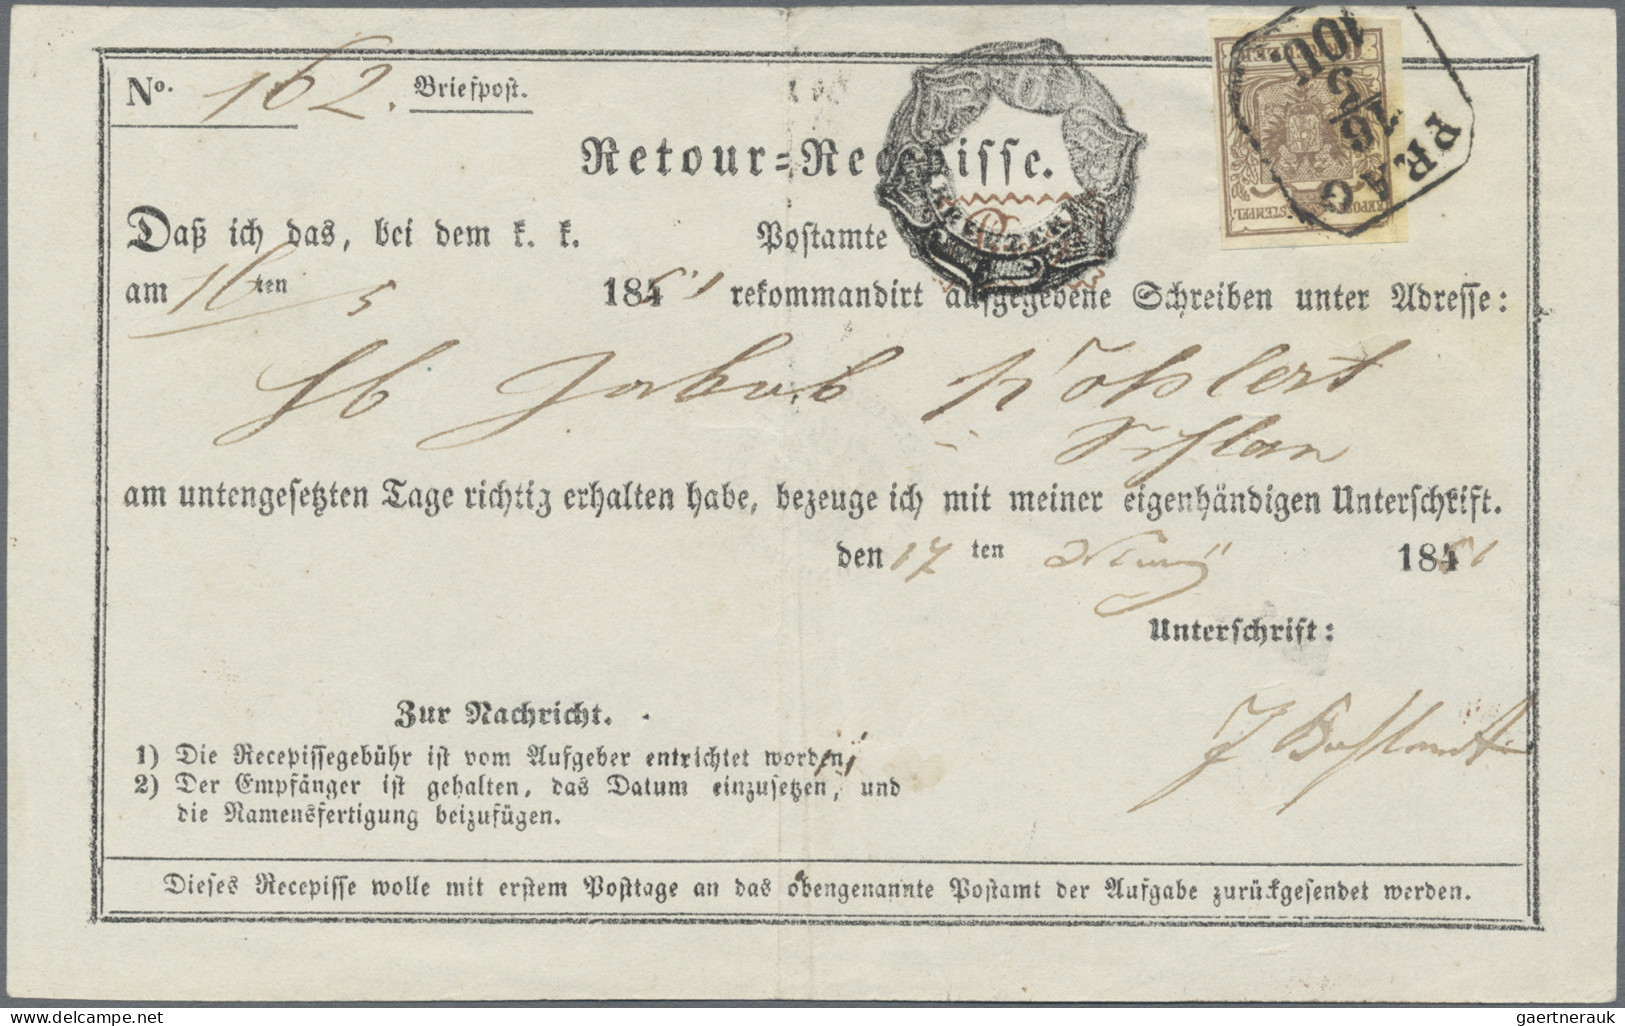 No. 162. Briefpost.
Retour=Recepisse.
Daß ich das, bei dem k. k. Postamte
am 16ten 5 1851 rekommandirt aufgegebene Schreiben unter Adresse:
Jakob
am untengesetzten Tage richtig erhalten habe, bezeuge ich mit meiner eigenhändigen Unterschrift.
den 17 ten 1851
Unterschrift:
Zur Nachricht.
1) Die Recepissegebühr ist vom Aufgeber entrichtet worden;
2) Der Empfänger ist gehalten, das Datum einzusetzen, und
die Namensfertigung beizufügen.
Dieses Recepisse wolle mit erstem Posttage an das obengenannte Postamt der Aufgabe zurückgesendet werden.
KREUZER
PRAG
16/5
10U.
STEMPEL
gaertnerauk